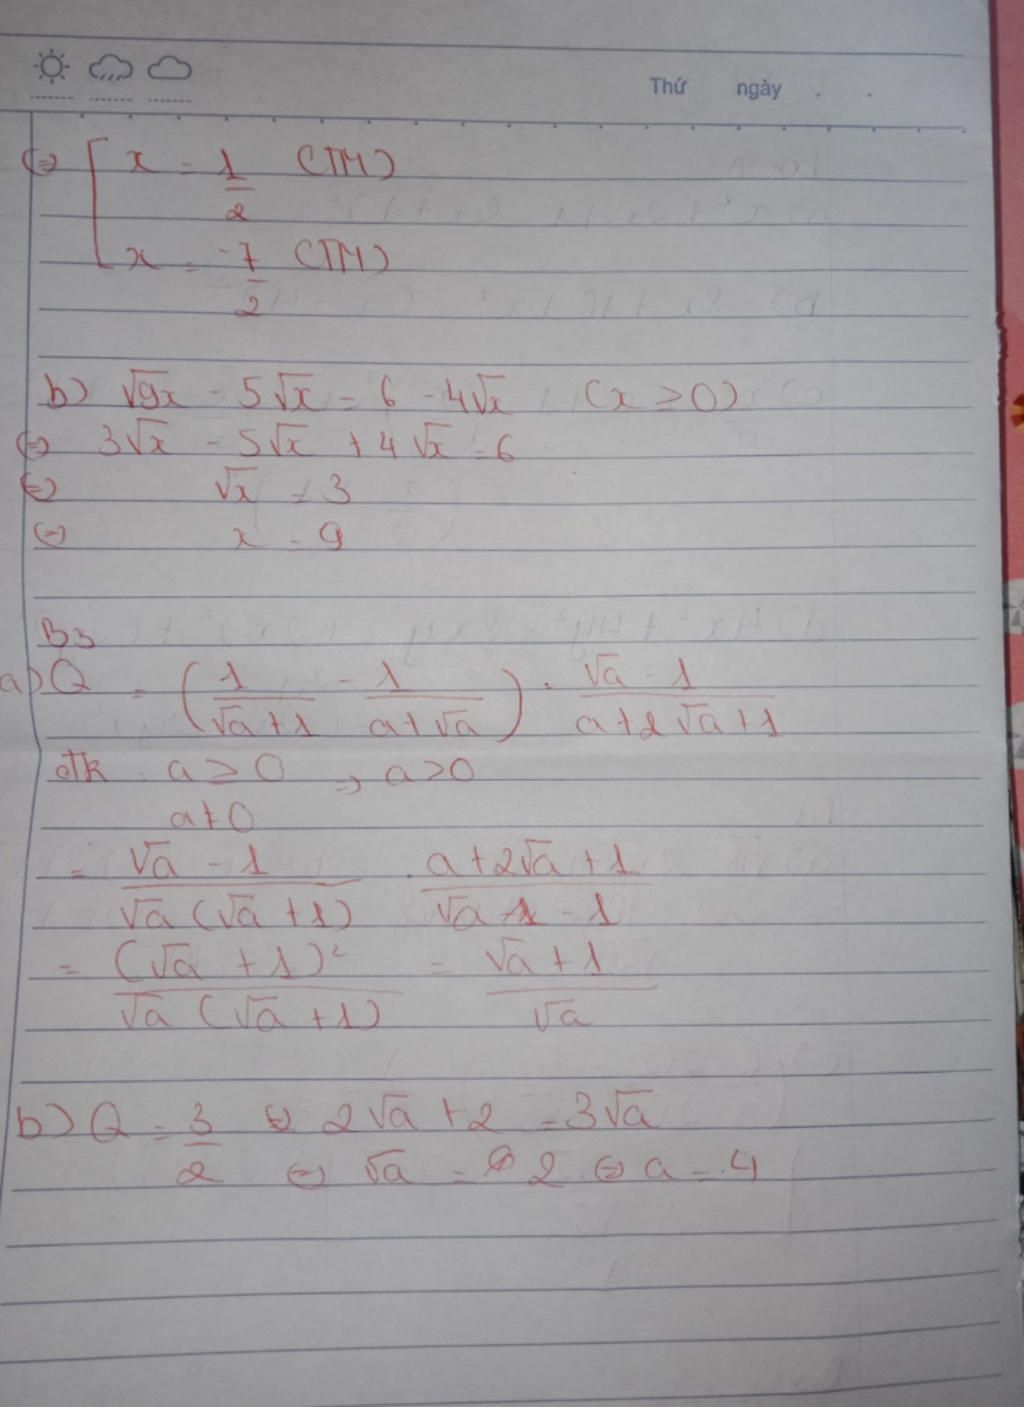 Thứ ngày . .
(=) [ x = 1/2 (TM)
x = -7/2 (TM)
b) √9x - 5√x = 6 - 4√x (x ≥ 0)
(=) 3√x - 5√x + 4√x = 6
(=) √x = 3
(=) x = 9
B3
a) Q = (1/(√a + 1) - 1/(a + √a)) : (√a - 1)/(a + 2√a + 1)
đk : a ≥ 0 → a > 0
a ≠ 0
= (√a - 1)/(√a (√a + 1)) . (a + 2√a + 1)/(√a - 1)
= (√a + 1)²/(√a (√a + 1)) = (√a + 1)/√a
b) Q = 3/2 (=) 2√a + 2 = 3√a
(=) √a = 2 (=) a = 4